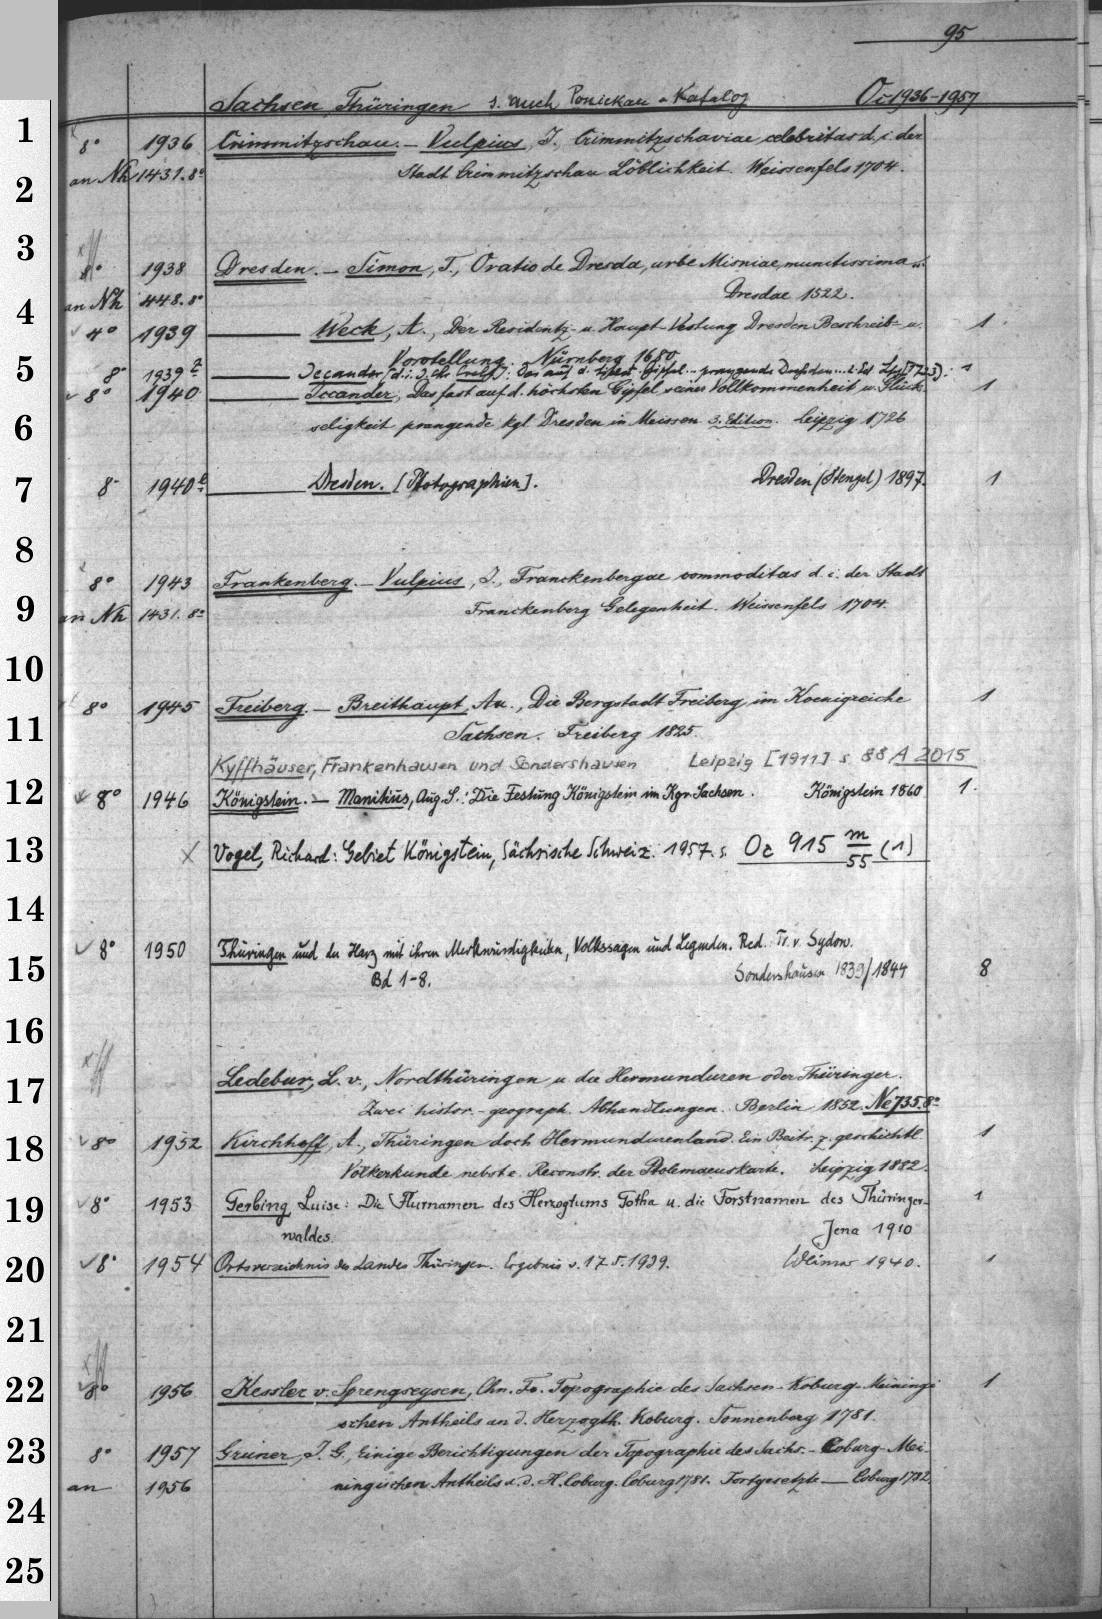 95
Sachsen, Thüringen s. auch Ponickau-Katalog Oc 1936-1957
1
8° 1936 Crimmitzschau. — Vulpius, J., Crimmitzschaviae celebritas d. i. der
2
an Nh 1431. 8° Stadt Crimmitzschau Löblichkeit. Weissenfels 1704.
3
8° 1938 Dresden. — Simon, T., Oratio de Dresda, urbe Misniae, munitissima
4
an Nh 448. 8° Dresdae 1522.
4° 1939 — Weck, A., Der Residentz- u. Haupt-Vestung Dresden Beschreib- u. 1
Vorstellung. Nürnberg 1680
5
8° 1939 a — Iccander d. i. J. Chr. Crell: Das auf d. höchst. Gipfel .. prangende Dresden... 2. Ed. Lpz. 1723. 1
8° 1940 — Iccander, Das fast auf d. höchsten Gipfel seiner Vollkommenheit u. Glück- 1
6
seligkeit prangende kgl. Dresden in Meissen. 3. Edition. Leipzig 1726
7
8° 1940 b — Dresden. [Photographien]. Dresden (Stengel) 1897. 1
8
8° 1943 Frankenberg. — Vulpius, J., Franckenbergae commoditas d. i. der Stadt
9
an Nh 1431. 8° Franckenberg Gelegenheit. Weissenfels 1704.
10
8° 1945 Freiberg. — Breithaupt, Au., Die Bergstadt Freiberg im Koenigreiche 1
11
Sachsen. Freiberg 1825.
Kyffhäuser, Frankenhausen und Sondershausen Leipzig [1911] s. 88 A 2015
12
8° 1946 Königstein. — Manitius, Aug. S.: Die Festung Königstein im Kgr. Sachsen. Königstein 1860 1.
13
X Vogel, Richard: Gebiet Königstein, Sächsische Schweiz. 1957. s. Oc 915 m/55 (1)
14
8° 1950 Thüringen und der Harz mit ihren Merkwürdigkeiten, Volkssagen und Legenden. Red.: Fr. v. Sydow.
15
Bd 1-8. Sondershausen 1839/1844 8
16
17
Ledebur, L. v., Nordthüringen u. die Hermunduren oder Thüringer.
Zwei histor.-geograph. Abhandlungen. Berlin 1852. Ne 735. 8°
18
8° 1952 Kirchhoff, A., Thüringen doch Hermundurenland. Ein Beitr. z. geschichtl. 1
Völkerkunde nebst e. Reconstr. der Ptolemaeuskarte. Leipzig 1882.
19
8° 1953 Gerbing, Luise: Die Flurnamen des Herzogtums Gotha u. die Forstnamen des Thüringer- 1
waldes. Jena 1910
20
8° 1954 Ortsverzeichnis des Landes Thüringen. Ergebnis v. 17.5.1939. Weimar 1940. 1
21
22
8° 1956 Kessler v. Sprengseysen, Chn. Fr. Topographie des Sachsen-Koburg-Meiningi- 1
schen Antheils an d. Herzogth. Koburg. Sonnenberg 1781.
23
8° 1957 Gruner, J. G., Einige Berichtigungen der Topographie des Sachs.-Coburg-Mei-
an 1956 ningischen Antheils a. d. H. Coburg. Coburg 1781. Fortgesetzte — Coburg 1782.
24
25